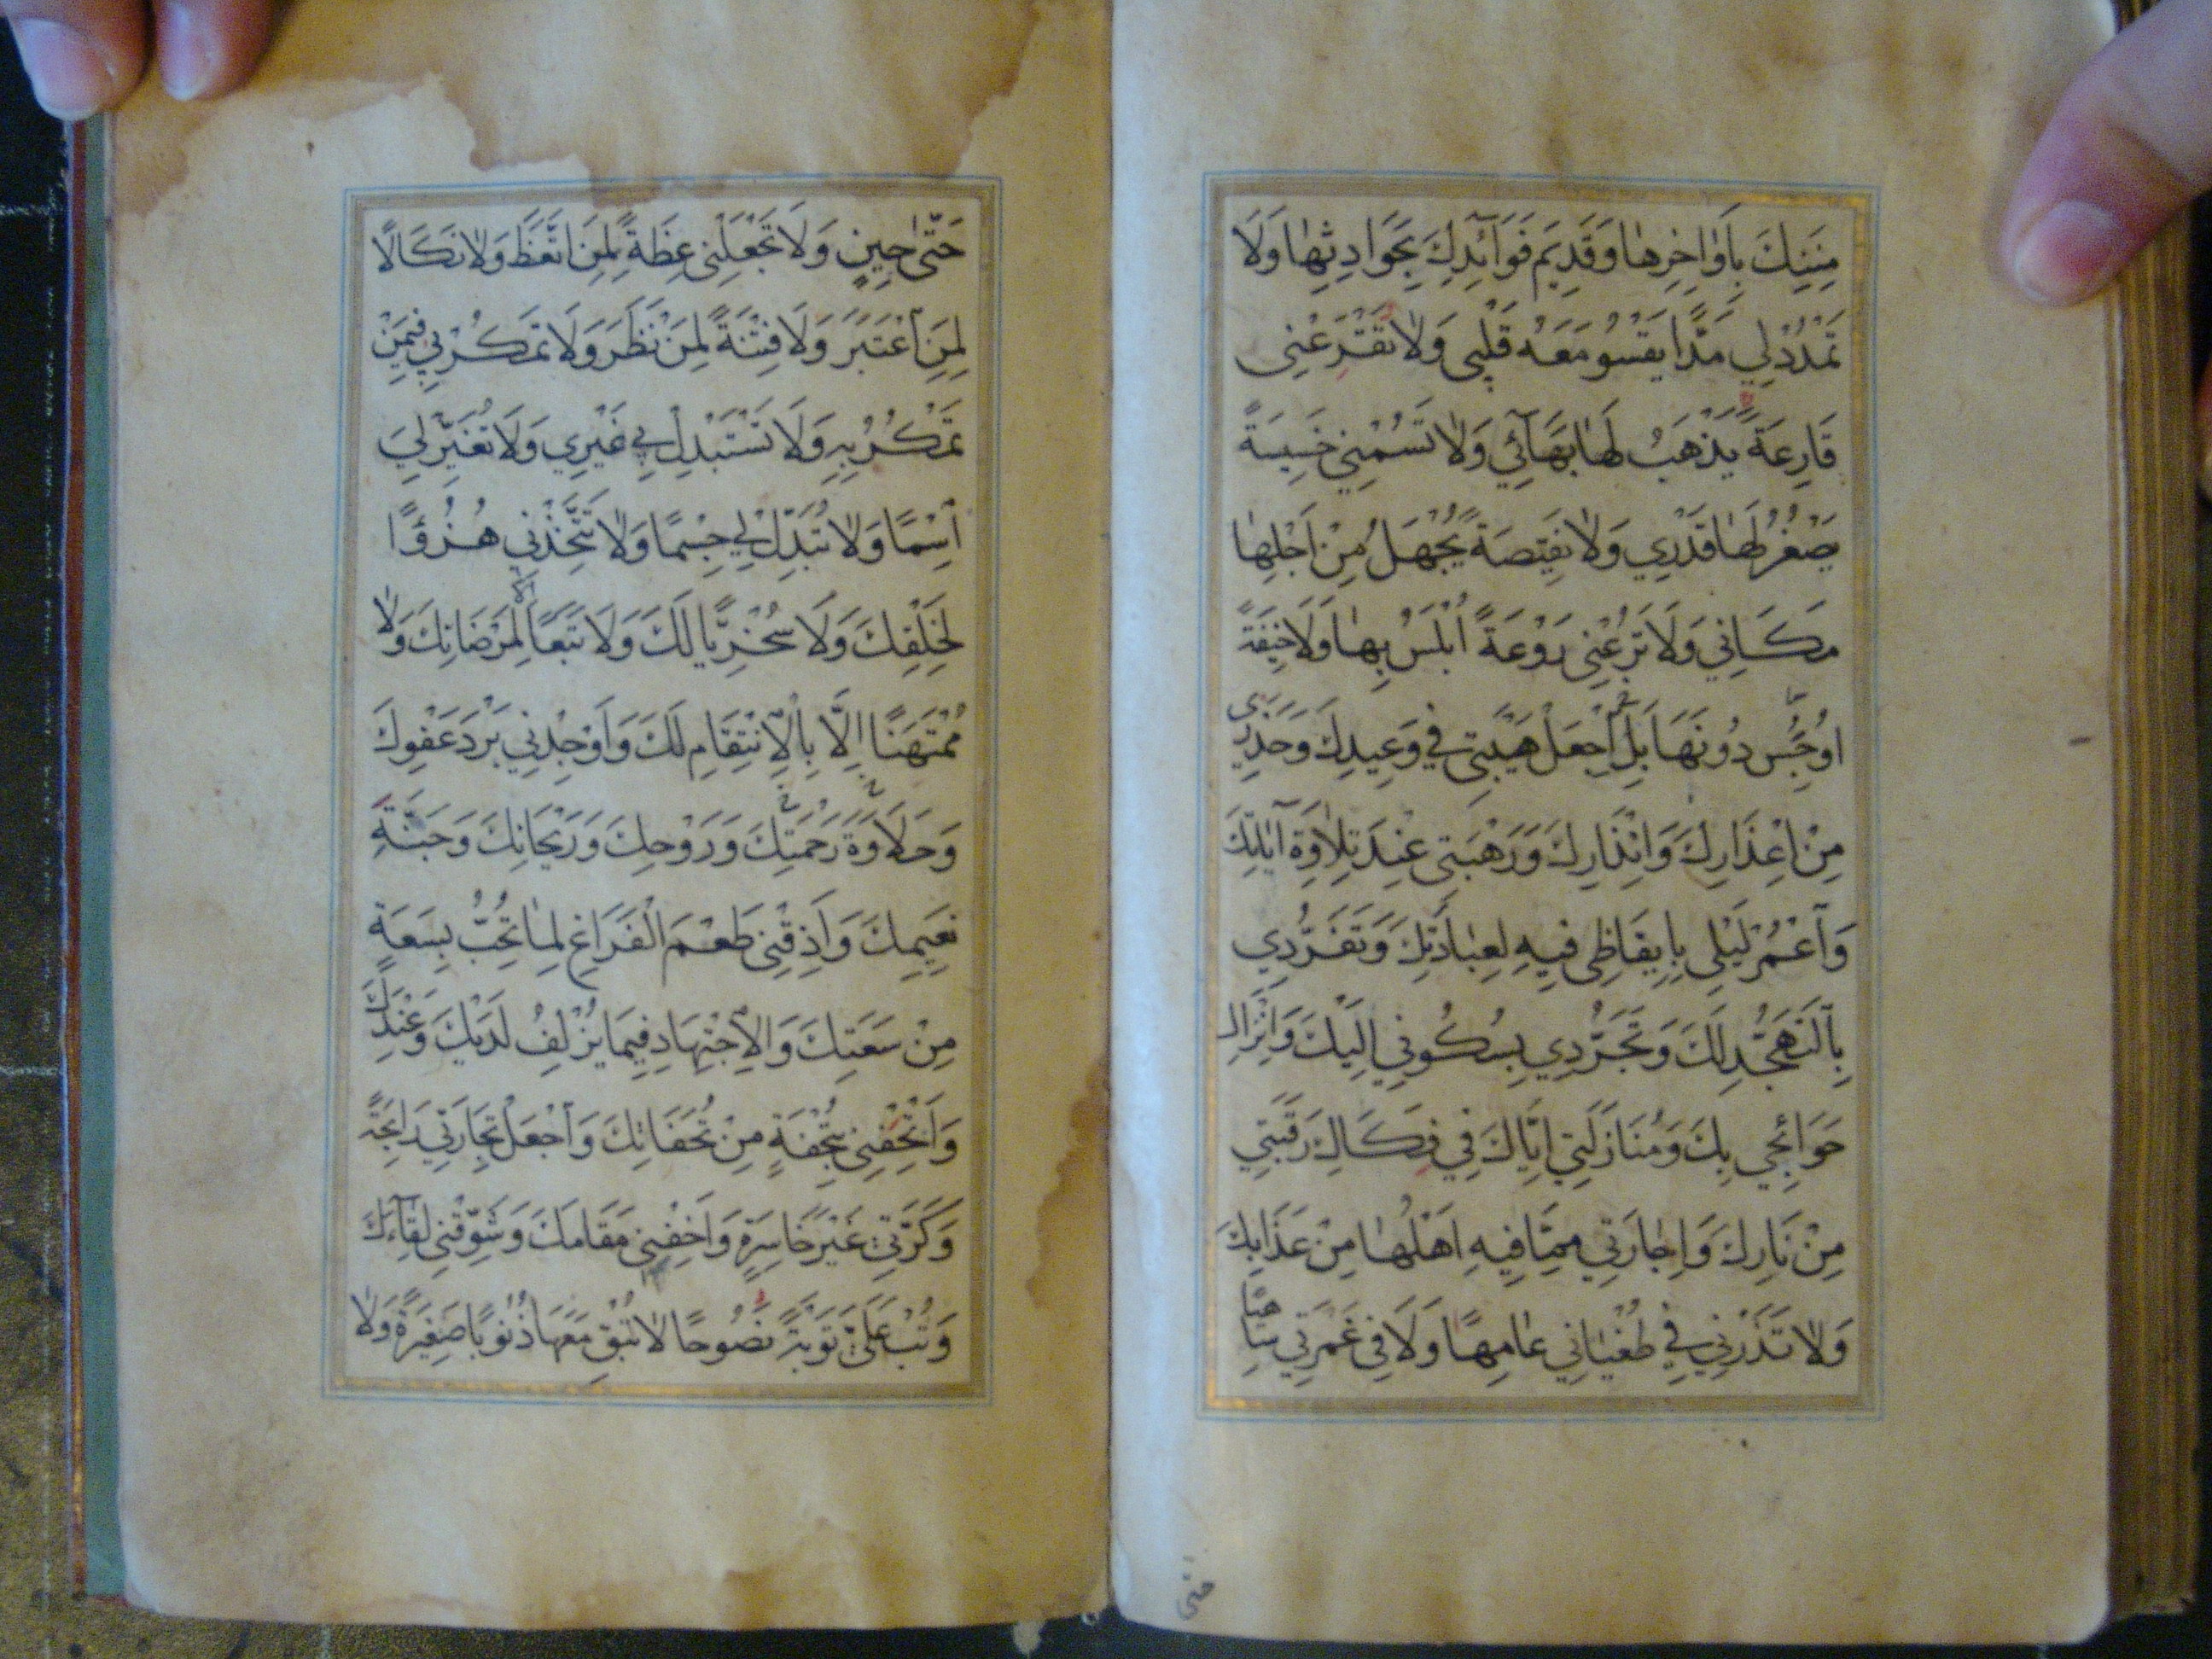 مِنَنِكَ بِأَوَاخِرِهَا وَقَدِيمَ فَوَائِدِكَ بِحَوَادِثِهَا وَلَا
تَمْدُدْ لِي مَدًّا يَقْسُو مَعَهُ قَلْبِي وَلَا تَقْرَعْنِي
قَارِعَةً يَذْهَبُ لَهَا بَهَائِي وَلَا تَسُمْنِي خَسِيسَةً
يَصْغُرُ لَهَا قَدْرِي وَلَا نَقِيصَةً يُجْهَلُ مِنْ أَجْلِهَا
مَكَانِي وَلَا تَرُعْنِي رَوْعَةً أُبْلِسُ بِهَا وَلَا خِيفَةً
اوُجِسُ دُونَهَا بَلِ اجْعَلْ هَيْبَتِي فِي وَعِيدِكَ وَحَذَرِي
مِنْ اِعْذَارِكَ وَاِنْذَارِكَ وَرَهْبَتِي عِنْدَ تِلَاوَةِ آيَاتِكَ
وَاعْمُرْ لَيْلِي بِإِيقَاظِي فِيهِ لِعِبَادَتِكَ وَتَفَرُّدِي
بِالتَّهَجُّدِ لَكَ وَتَجَرُّدِي بِسُكُونِي اِلَيْكَ وَاِنْزَالِ
حَوَائِجِي بِكَ وَمُنَازَلَتِي اِيَّاكَ فِي فَكَاكِ رَقَبَتِي
مِنْ نَارِكَ وَاِجَارَتِي مِمَّا فِيهِ اَهْلُهَا مِنْ عَذَابِكَ
وَلَا تَذَرْنِي فِي طُغْيَانِي عَامِهًا وَلَا فِي غَمْرَتِي سَاهِيًا
حَتَّى حِينٍ وَلَا تَجْعَلْنِي عِظَةً لِمَنِ اتَّعَظَ وَلَا نَكَالًا
لِمَنِ اعْتَبَرَ وَلَا فِتْنَةً لِمَنْ نَظَرَ وَلَا تَمْكُرْ بِي فِيمَنْ
تَمْكُرُ بِهِ وَلَا تَسْتَبْدِلْ بِي غَيْرِي وَلَا تُغَيِّرْ لِيَ
اسْمًا وَلَا تُبَدِّلْ لِي جِسْمًا وَلَا تَتَّخِذْنِي هُزُؤًا
لِخَلْقِكَ وَلَا سُخْرِيًّا لَكَ وَلَا تَبَعًا اِلَّا لِمَرْضَاتِكَ وَلَا
مُمْتَهَنًا اِلَّا بِالْاِنْتِقَامِ لَكَ وَاَوْجِدْنِي بَرْدَ عَفْوِكَ
وَحَلَاوَةَ رَحْمَتِكَ وَرَوْحِكَ وَرَيْحَانِكَ وَجَنَّةِ
نَعِيمِكَ وَاَذِقْنِي طَعْمَ الْفَرَاغِ لِمَا تُحِبُّ بِسَعَةٍ
مِنْ سَعَتِكَ وَالْاِجْتِهَادِ فِيمَا يُزْلِفُ لَدَيْكَ وَعِنْدَكَ
وَاَتْحِفْنِي بِتُحْفَةٍ مِنْ تُحَفَاتِكَ وَاجْعَلْ تِجَارَتِي رَابِحَةً
وَكَرَّتِي غَيْرَ خَاسِرَةٍ وَاَخِفْنِي مَقَامَكَ وَشَوِّقْنِي لِقَاءَكَ
وَتُبْ عَلَيَّ تَوْبَةً نَصُوحًا لَا تُبْقِ مَعَهَا ذُنُوبًا صَغِيرَةً وَلَا